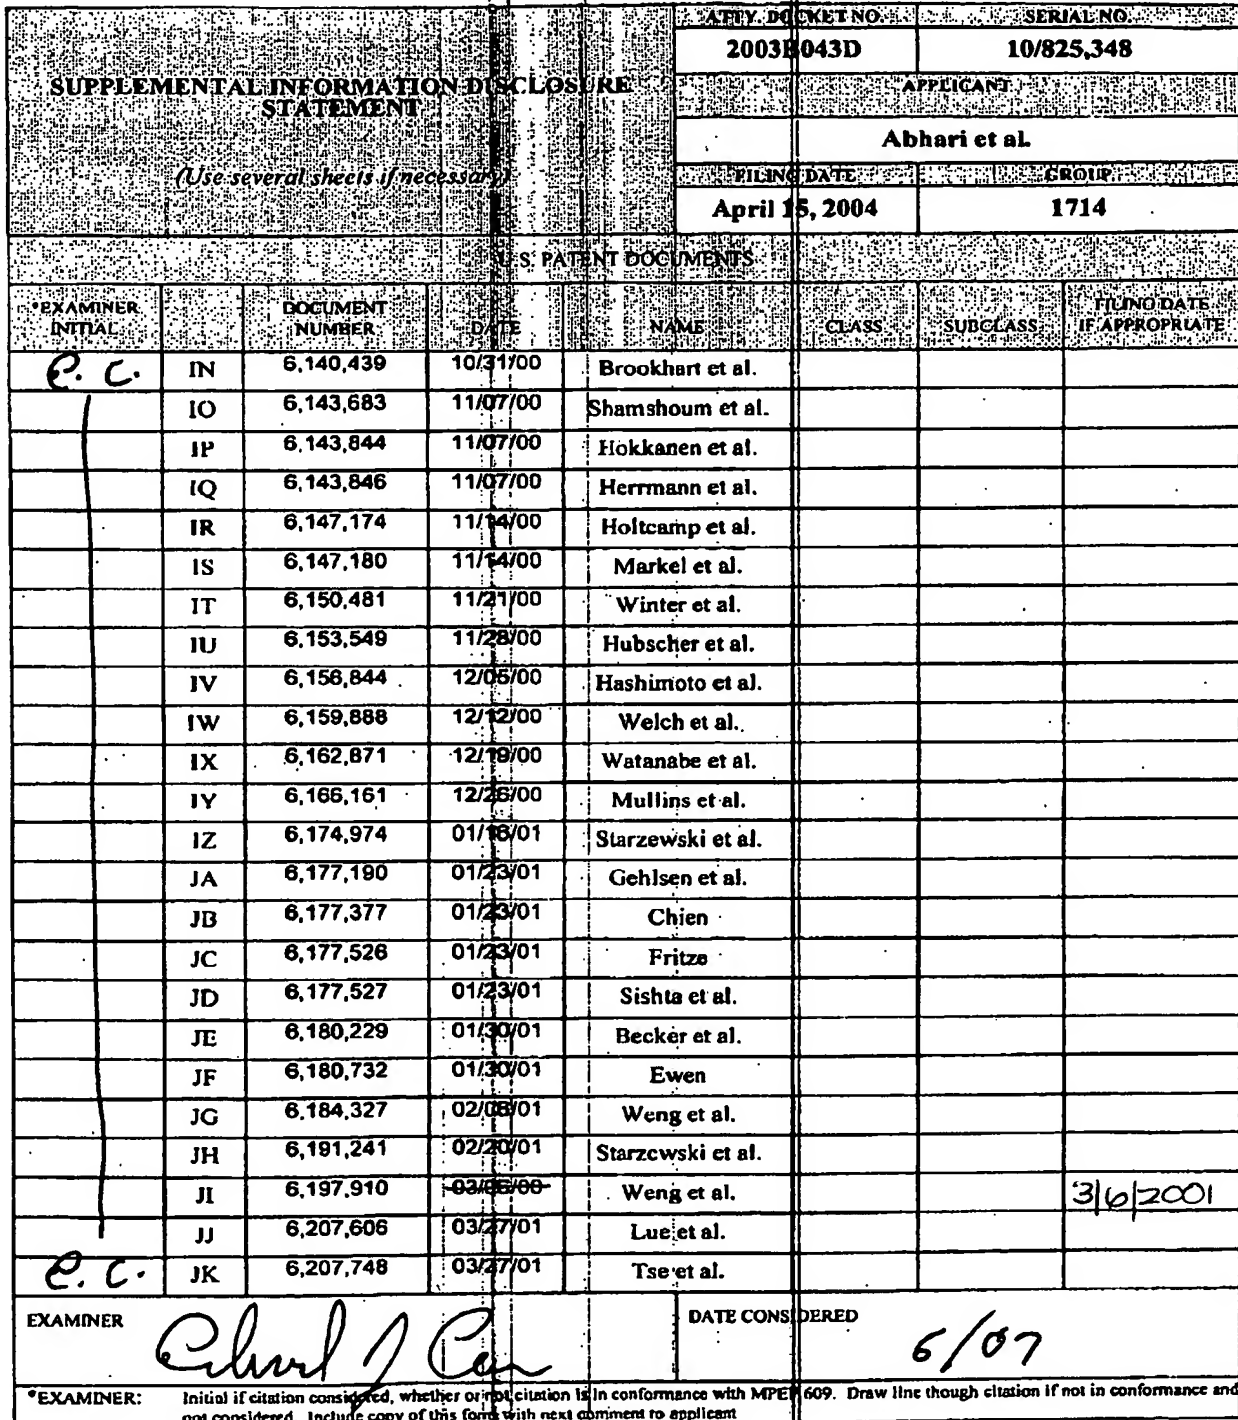 ATTY. DOCKET NO. SERIAL NO.
2003B043D 10/825,348
SUPPLEMENTAL INFORMATION DISCLOSURE
STATEMENT
APPLICANT
Abhari et al.
(Use several sheets if necessary)
FILING DATE GROUP
April 15, 2004 1714
U.S. PATENT DOCUMENTS
*EXAMINER INITIAL DOCUMENT NUMBER DATE NAME CLASS SUBCLASS FILING DATE IF APPROPRIATE
e. c. IN 6,140,439 10/31/00 Brookhart et al.
IO 6,143,683 11/07/00 Shamshoum et al.
IP 6,143,844 11/07/00 Hokkanen et al.
IQ 6,143,846 11/07/00 Herrmann et al.
IR 6,147,174 11/14/00 Holtcamp et al.
IS 6,147,180 11/14/00 Markel et al.
IT 6,150,481 11/21/00 Winter et al.
IU 6,153,549 11/28/00 Hubscher et al.
IV 6,156,844 12/05/00 Hashimoto et al.
IW 6,159,888 12/12/00 Welch et al.
IX 6,162,871 12/19/00 Watanabe et al.
IY 6,166,161 12/26/00 Mullins et al.
IZ 6,174,974 01/16/01 Starzewski et al.
JA 6,177,190 01/23/01 Gehlsen et al.
JB 6,177,377 01/23/01 Chien
JC 6,177,526 01/23/01 Fritze
JD 6,177,527 01/23/01 Sishta et al.
JE 6,180,229 01/30/01 Becker et al.
JF 6,180,732 01/30/01 Ewen
JG 6,184,327 02/06/01 Weng et al.
JH 6,191,241 02/20/01 Starzewski et al.
JI 6,197,910 03/06/00 Weng et al. 3/6/2001
JJ 6,207,606 03/27/01 Lue et al.
e. c. JK 6,207,748 03/27/01 Tse et al.
EXAMINER DATE CONSIDERED
6/07
*EXAMINER: Initial if citation considered, whether or not citation is in conformance with MPEP 609. Draw line though citation if not in conformance and
not considered. Include copy of this form with next comment to applicant